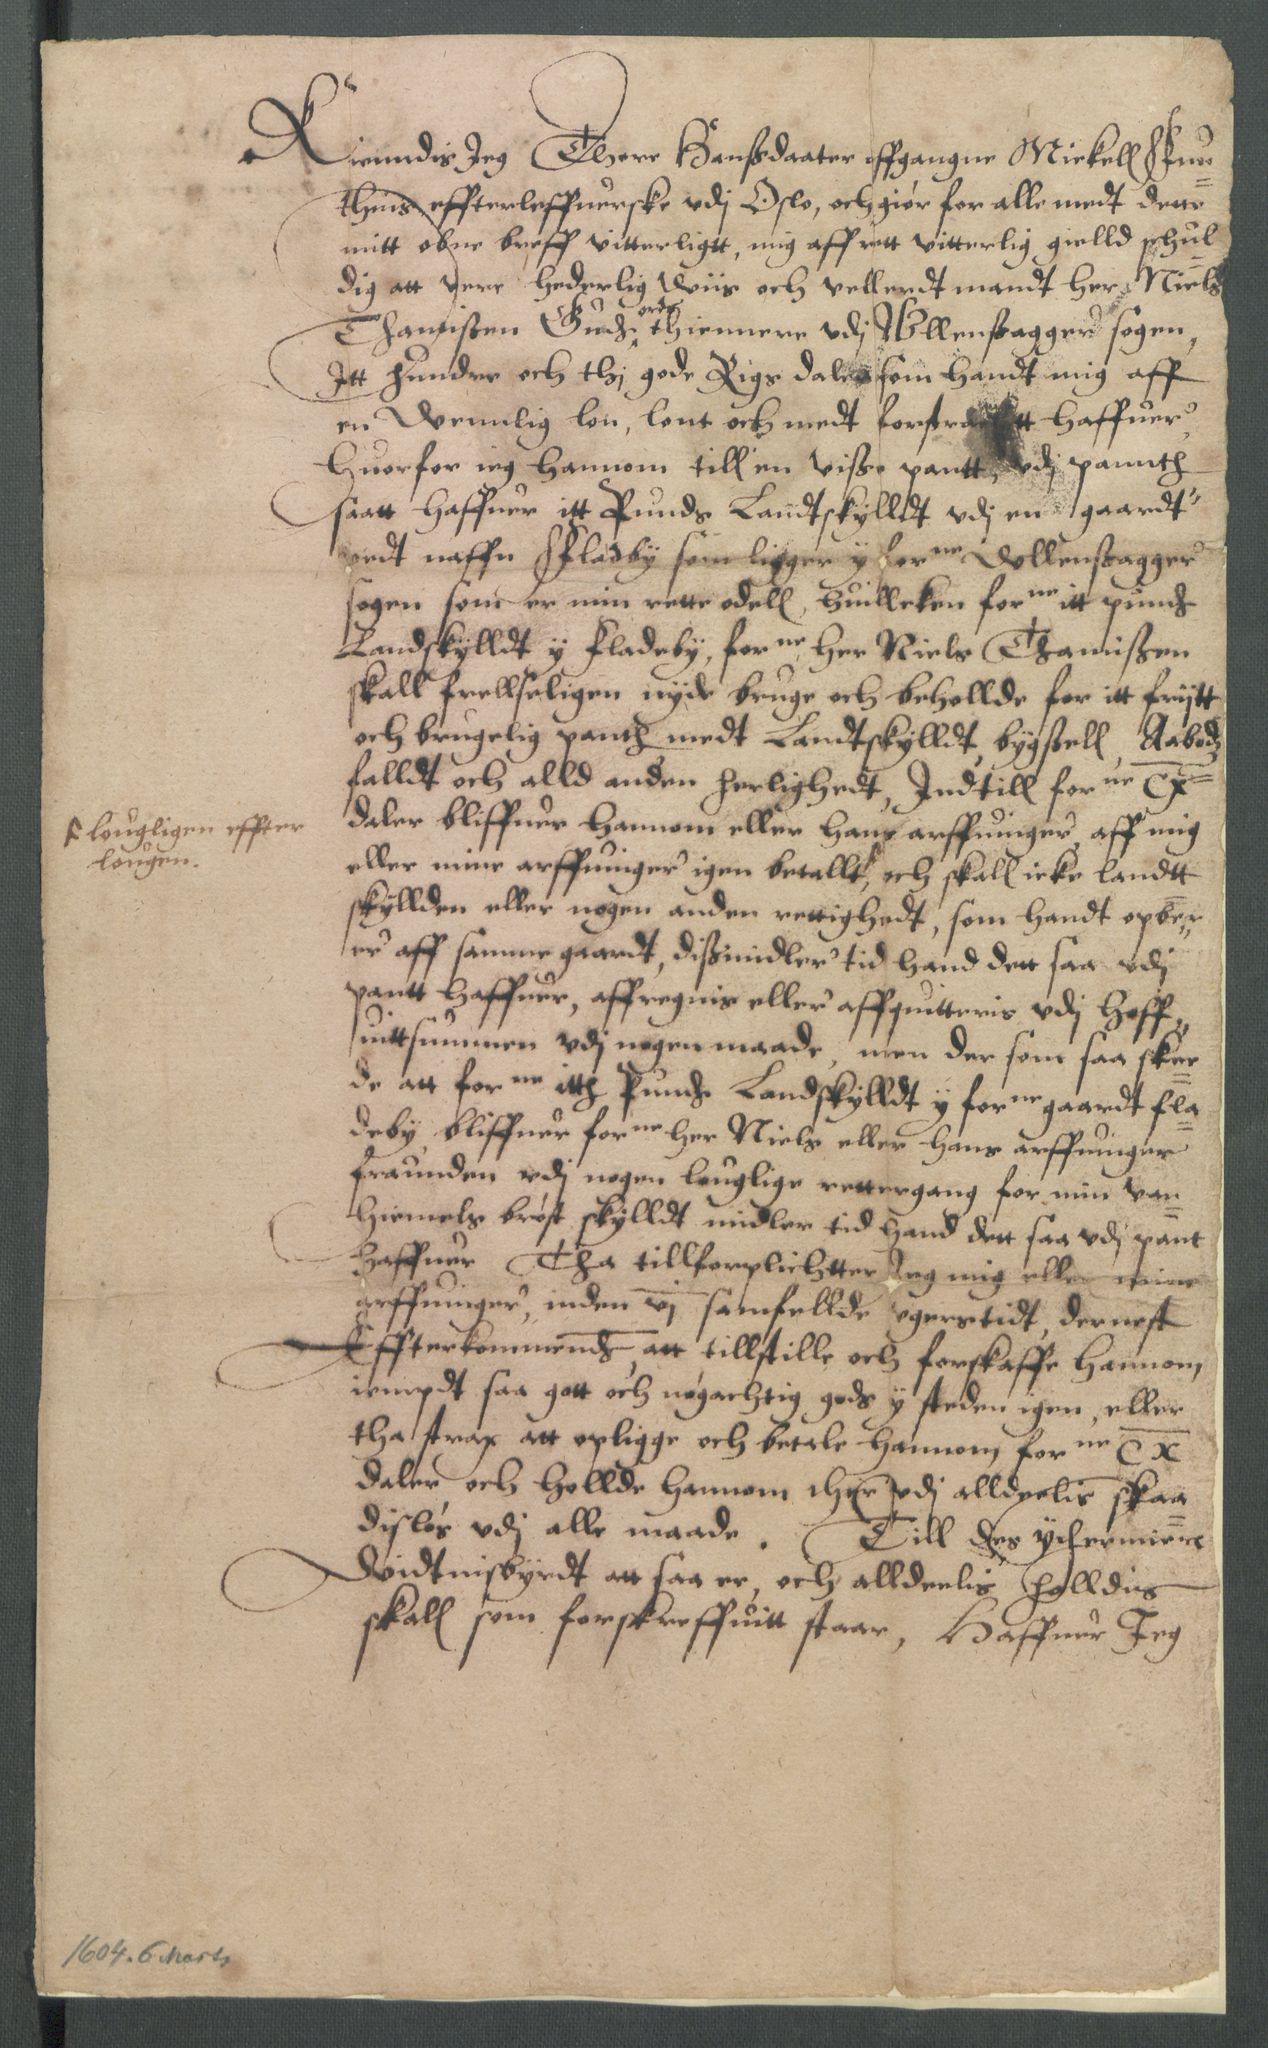 Kienndis Jeg Thore Hanßdaater affgangne Mickell Knu=
thius effterleffuerske vdj Oslo, och giør for alle medt dette
mitt obne breff vitterligtt, mig aff rett vitterlig gielld schul
dig att vere hederlig Wiis och vellerdt mandt her Niels
Thamißen Gudz ordz thiennere vdj Wllenßagger sogen,
Itt hundre och thj gode Rigs daler som handt mig aff
en Wennlig lon, lont och medt forstragtt haffuer,
huorfor ieg hannom till en visße pantt, vdj pannth
saatt haffuer itt Punds Landtskylldt vdj en gaardt
vedt naffn Fladby som ligger y for.ne Wllenßagger
sogen som er min rette odell, huilleken for.ne itt pundz
Landskylldt y Fladeby, for.ne her Niels Thamißen
skall frellseligen nyde bruge och behollde for itt friitt
och brugelig panth medt Landtskylldt, bygßell, Aabodz
falldt och alld anden herlighedt, Indtill for.ne Cx=
daler bliffuer hannom eller hans arffuinger, aff mig
eller mine arffuinger igen betallt, och skall icke landtt
skyllden eller nogen anden rettighedt, som handt opber
er aff samme gaardt, dißmidler tid hand dett saa vdj
pantt haffuer, affregnis eller affquitteris vdj hoff
uittsummen vdj nogen maade, men der som saa skee
de att for.ne itth Pundz Landskylldt y for.ne gaardt fla=
deby bliffuer for.ne her Niels eller hans arffuinger
fraunden vdj nogen louglige rettergang for min van=
hiemels brøst skylldt midler tid hand dett saa vdj pant
haffuer Tha tillforplichtter Jeg mig eller mine
arffuinger, inden vj samfellde vgerstidt, dernest
Effterkommendz, att tillstille och forskaffe hannom,
iempdt saa gott och nøgachtig gods y steden igen, eller
tha strax att opligge och betale hannom for.ne Cx
daler och hollde hannom her vdj alldeelis skaa=
disløs vdj alle maade. Till des ydermiere
Widtnisbyrdt att saa er, och alldeelis holldis
skall som forskreffuitt staar, Haffuer Jeg
F lougligen effter
lougen.
1604. 6 Marts